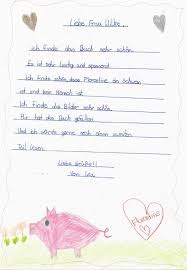 Liebe Frau Wilke,
Ich finde das Buch sehr schön.
Es ist sehr lustig und spannend.
Ich finde schön, dass Floraline ein Schwein
ist und kein Mensch ist.
Ich finde die Bilder sehr schön.
Mir hat das Buch gefallen
Und ich würde gerne noch einen zweiten
Teil lesen.
Liebe Grüße!!
Von Lea
Floraline